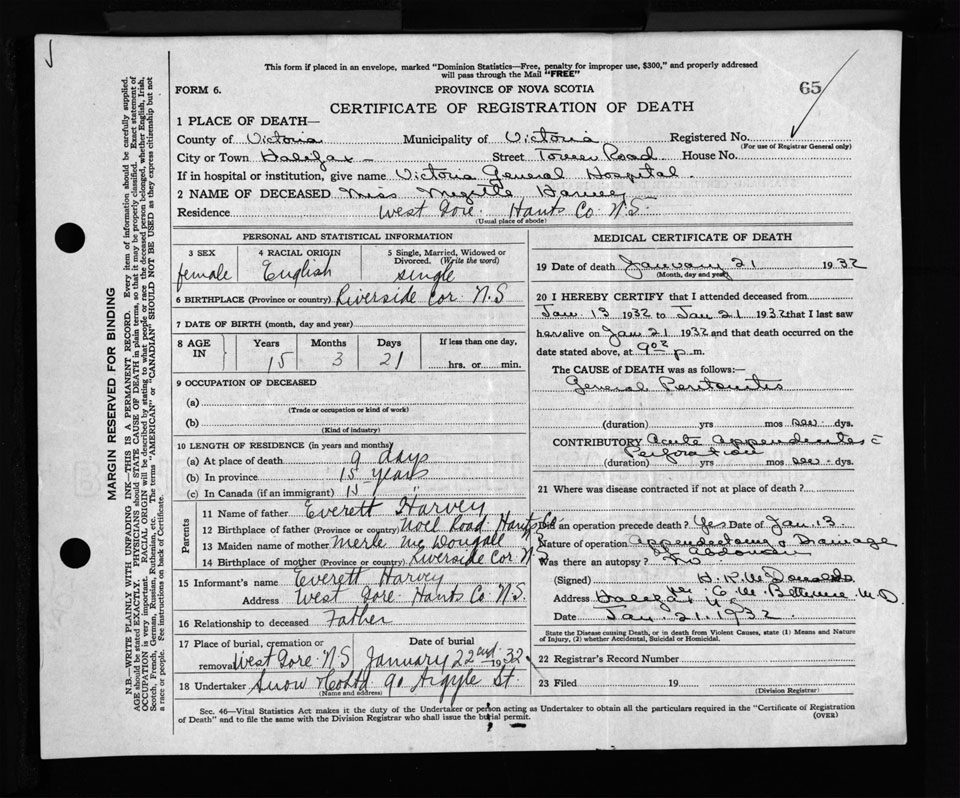 This form if placed in an envelope, marked "Dominion Statistics—Free, penalty for improper use, $300," and properly addressed
will pass through the Mail "FREE"
FORM 6.
PROVINCE OF NOVA SCOTIA
65
CERTIFICATE OF REGISTRATION OF DEATH
1 PLACE OF DEATH—
County of Victoria Municipality of Victoria Registered No.
(For use of Registrar General only)
City or Town Halifax Street Tower Road House No.
If in hospital or institution, give name Victoria General Hospital
2 NAME OF DECEASED Miss Harvey
Residence West Gore Hants Co N.S.
(Usual place of abode)
PERSONAL AND STATISTICAL INFORMATION
3 SEX 4 RACIAL ORIGIN 5 Single, Married, Widowed or Divorced. (Write the word)
female English single
6 BIRTHPLACE (Province or country) Riverside Cor. N.S
7 DATE OF BIRTH (month, day and year)
8 AGE IN Years Months Days If less than one day,
15 3 21 hrs. or min.
9 OCCUPATION OF DECEASED
(a)
(Trade or occupation or kind of work)
(b)
(Kind of industry)
10 LENGTH OF RESIDENCE (in years and months)
(a) At place of death 9 days
(b) In province 15 years
(c) In Canada (if an immigrant) 15 "
Parents
11 Name of father Everett Harvey
12 Birthplace of father (Province or country) Noel Road Hants Co.
13 Maiden name of mother Merle McDougall
14 Birthplace of mother (Province or country) Riverside Cor N.S
15 Informant's name Everett Harvey
Address West Gore Hants Co N.S.
16 Relationship to deceased Father
17 Place of burial, cremation or Date of burial
removal West Gore N.S January 22nd 1932
18 Undertaker Snow & Co Ltd 90 Argyle St.
(Name and address)
MEDICAL CERTIFICATE OF DEATH
19 Date of death January 21 1932
(Month, day and year)
20 I HEREBY CERTIFY that I attended deceased from
Jan. 13 1932 to Jan 21 1932 that I last saw
her alive on Jan 21 1932 and that death occurred on
date stated above, at 9 p.m.
The CAUSE of DEATH was as follows:—
General Peritonitis
(duration) yrs mos dys.
CONTRIBUTORY Acute Appendicitis
Perforation
(duration) yrs mos dys.
21 Where was disease contracted if not at place of death?
Did an operation precede death? Yes Date of Jan. 13
Nature of operation Appendectomy & Drainage
of Abdomen
Was there an autopsy? No
(Signed) H. K. McDonald
per C. M. M.D.
Address Halifax N.S.
Date Jan. 21. 1932
State the Disease causing Death, or in death from Violent Causes, state (1) Means and Nature
of Injury, (2) whether Accidental, Suicidal or Homicidal.
22 Registrar's Record Number
23 Filed 19
(Division Registrar)
Sec. 46—Vital Statistics Act makes it the duty of the Undertaker or person acting as Undertaker to obtain all the particulars required in the "Certificate of Registration
of Death" and to file the same with the Division Registrar who shall issue the burial permit.
(OVER)
MARGIN RESERVED FOR BINDING
N.B.—WRITE PLAINLY WITH UNFADING INK—THIS IS A PERMANENT RECORD. Every item of information should be carefully supplied.
AGE should be stated EXACTLY. PHYSICIANS should STATE CAUSE OF DEATH in plain terms, so that it may be properly classified. Exact statement of
OCCUPATION is very important. RACIAL ORIGIN will be described by stating to what people or race the deceased person belonged, whether English, Irish,
Scotch, French, German, Russian, Ruthenian, etc. The terms "AMERICAN" or "CANADIAN" SHOULD NOT BE USED as they express citizenship but not
a race or people. See instructions on back of Certificate.